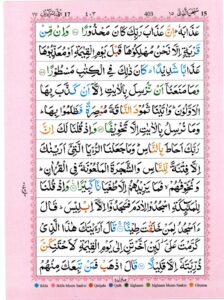 17 بنی اسرآءیل ١٧ ٤٠٣ 403 سبحن الذی ١٥ 15
عَذَابَهٗ ؕ اِنَّ عَذَابَ رَبِّكَ كَانَ مَحْذُوْرًا ۝ وَاِنْ مِّنْ
قَرْيَةٍ اِلَّا نَحْنُ مُهْلِكُوْهَا قَبْلَ يَوْمِ الْقِيٰمَةِ اَوْ مُعَذِّبُوْهَا
عَذَابًا شَدِيْدًا ؕ كَانَ ذٰلِكَ فِى الْكِتٰبِ مَسْطُوْرًا ۝
وَمَا مَنَعَنَاۤ اَنْ نُّرْسِلَ بِالْاٰيٰتِ اِلَّاۤ اَنْ كَذَّبَ بِهَا
الْاَوَّلُوْنَ ؕ وَاٰتَيْنَا ثَمُوْدَ النَّاقَةَ مُبْصِرَةً فَظَلَمُوْا بِهَا ؕ
وَمَا نُرْسِلُ بِالْاٰيٰتِ اِلَّا تَخْوِيْفًا ۝ وَاِذْ قُلْنَا لَكَ اِنَّ
رَبَّكَ اَحَاطَ بِالنَّاسِ ؕ وَمَا جَعَلْنَا الرُّءْيَا الَّتِىْۤ اَرَيْنٰكَ
اِلَّا فِتْنَةً لِّلنَّاسِ وَالشَّجَرَةَ الْمَلْعُوْنَةَ فِى الْقُرْاٰنِ ؕ
وَنُخَوِّفُهُمْ ۙ فَمَا يَزِيْدُهُمْ اِلَّا طُغْيَانًا كَبِيْرًا ۝ وَاِذْ قُلْنَا
لِلْمَلٰٓئِكَةِ اسْجُدُوْا لِاٰدَمَ فَسَجَدُوْۤا اِلَّاۤ اِبْلِيْسَ ؕ قَالَ
ءَاَسْجُدُ لِمَنْ خَلَقْتَ طِيْنًا ۝ قَالَ اَرَءَيْتَكَ هٰذَا الَّذِىْ
كَرَّمْتَ عَلَىَّ ؗ لَئِنْ اَخَّرْتَنِ اِلٰى يَوْمِ الْقِيٰمَةِ لَاَحْتَنِكَنَّ
ذُرِّيَّتَهٗۤ اِلَّا قَلِيْلًا ۝ قَالَ اذْهَبْ فَمَنْ تَبِعَكَ مِنْهُمْ
Ikhfa Ikhfa Meem Saakin Qalqala Qalb Idghaam Idghaam Meem Saakin Ghunna